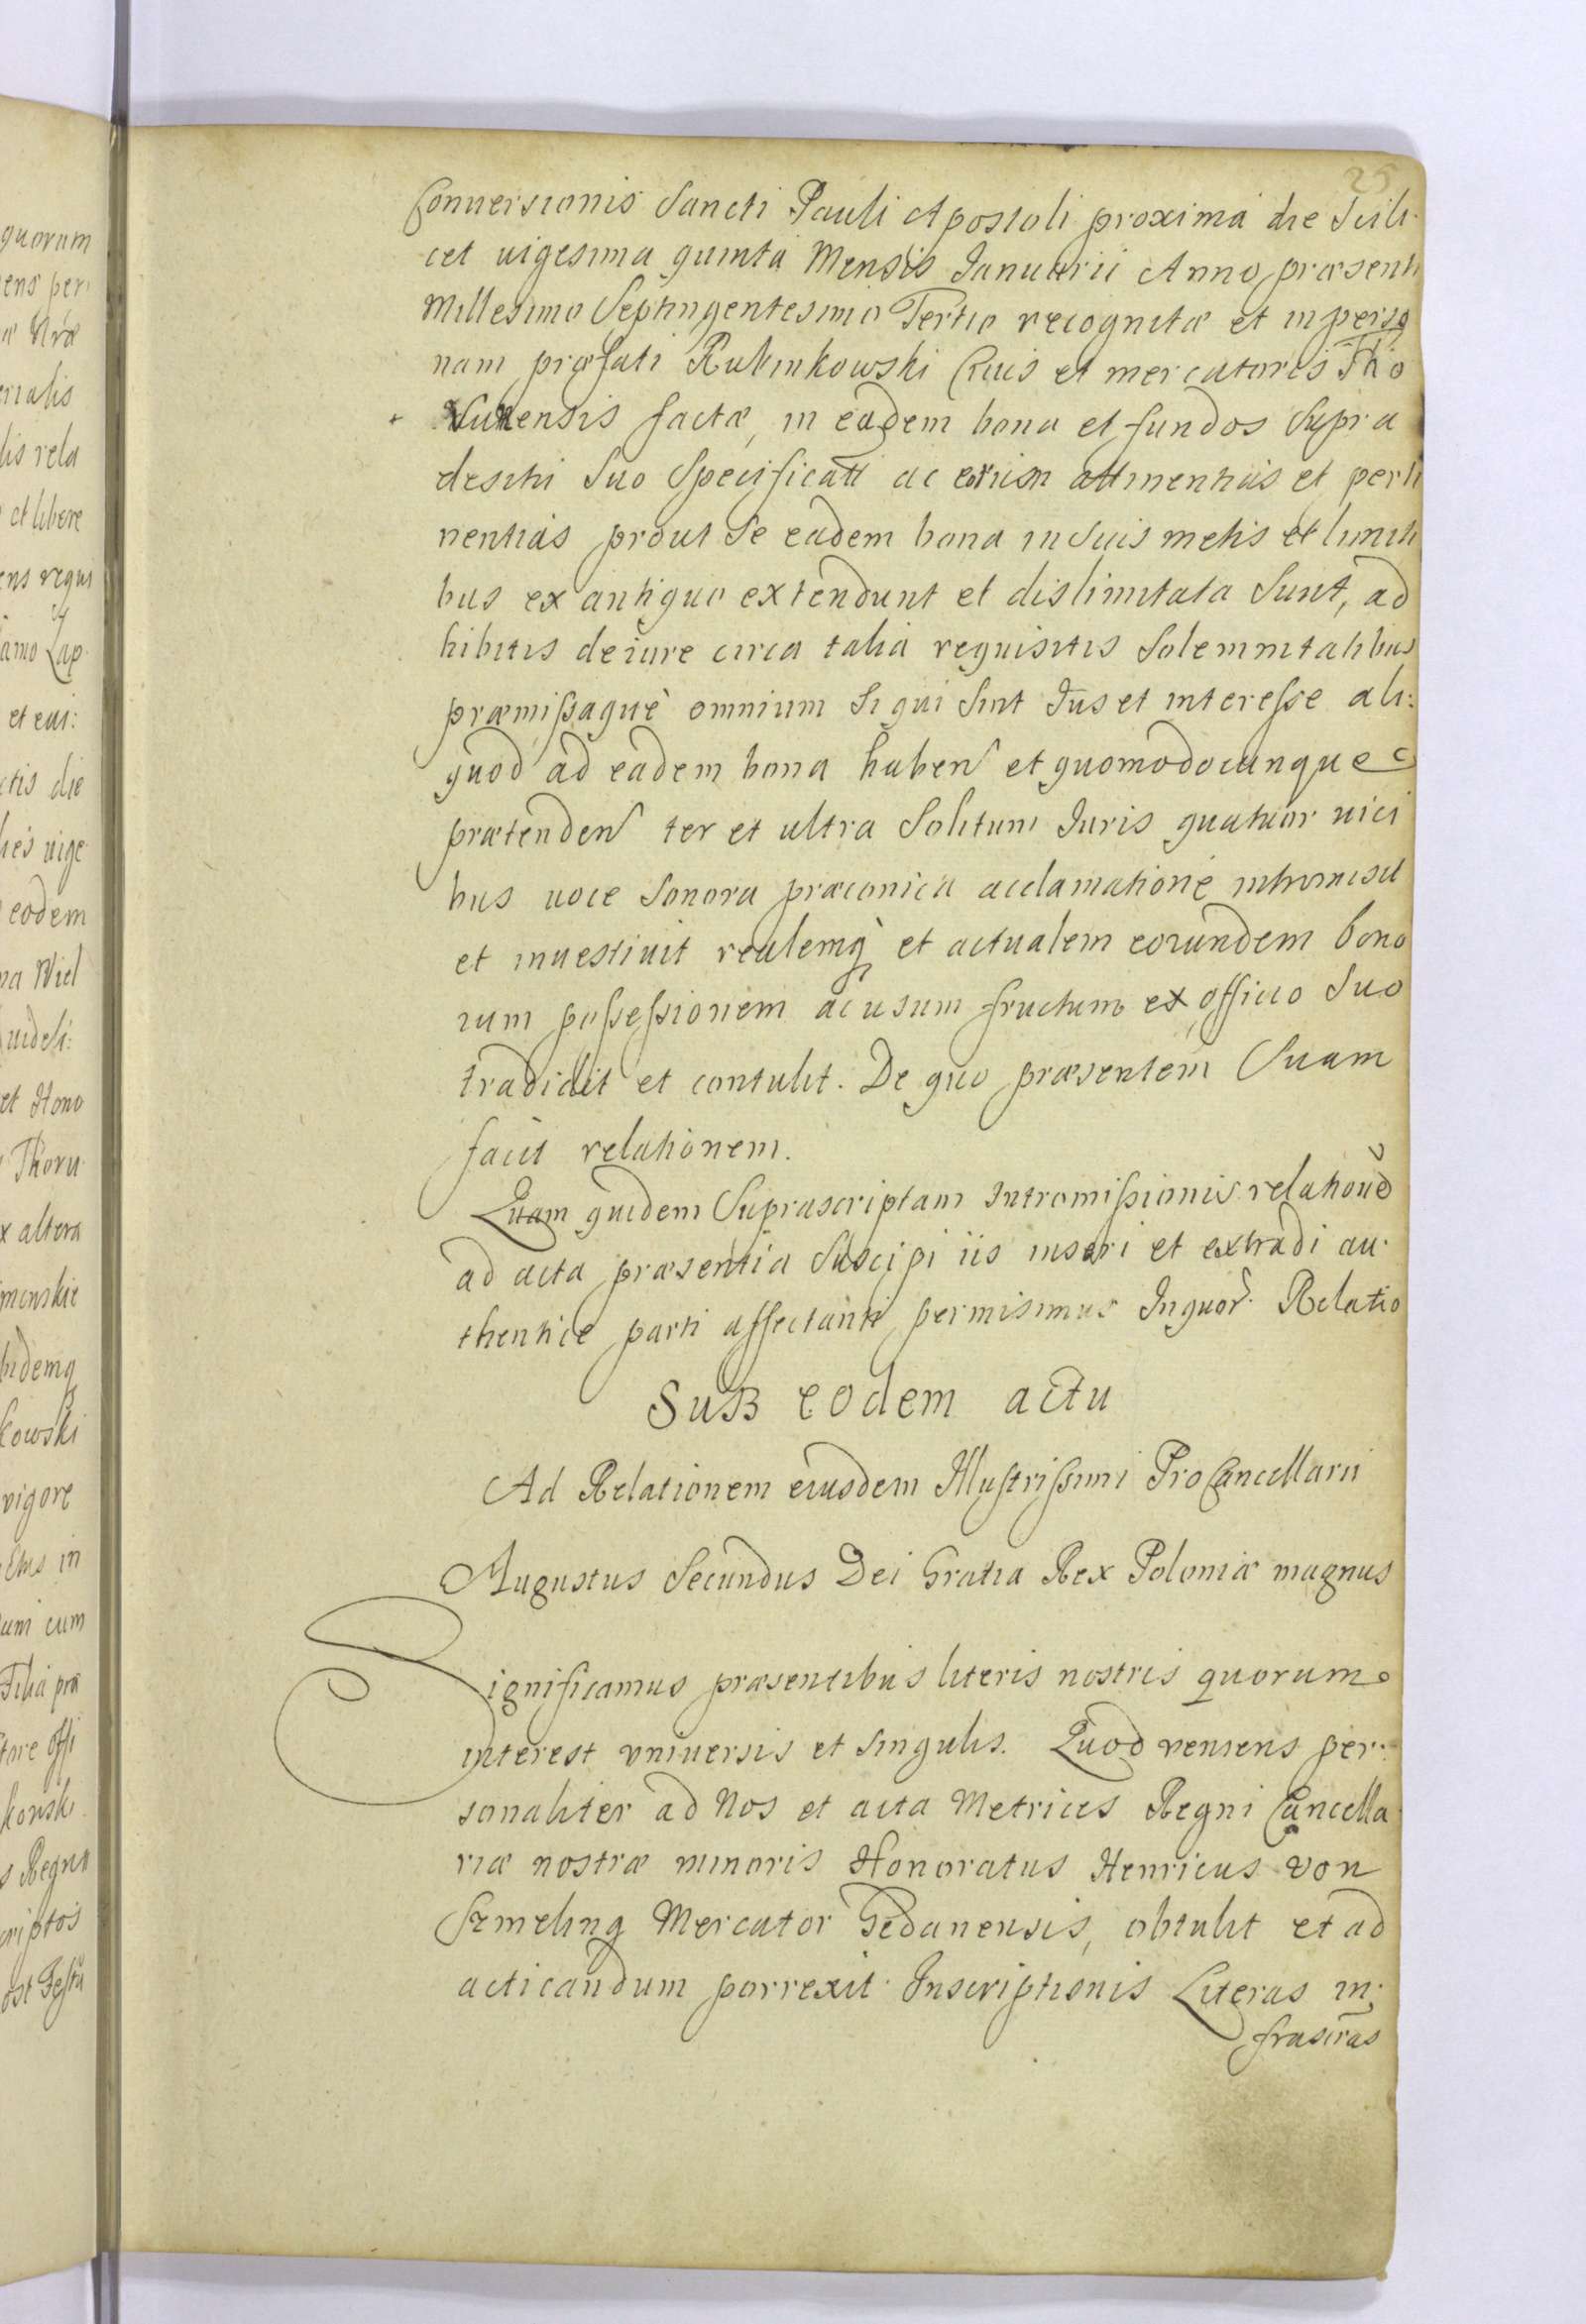 25
Conuersionis Sancti Pauli Apostoli proxima die Scili
cet uigesima quinta Mensis Januarii Anno præsenti
Millesimo Septingentesimo Tertio recognitæ et in perso
nam præfati Rubinkowski Ciuis et mercatoris Tho
runensis factæ, in eadem bona et fundos Supra
descrhi Suo Specificati ac eorum attinentiis et perti
nentias prout Se eadem bona in Suis metis et limiti
bus ex antiquo extendunt et dislimitata Sunt, ad
hibitis de iure circa talia requisitis Solemnitatibus
præmissaquè omnium Si qui Sint Jus et interesse ali:
quod ad eadem bona haben et quomodocunque
prætenden ter et ultra Solitum Juris quatuor uici
bus uoce Sonora præconica acclamatione intromisit
et inuestiuit realemq et actualem eorundem bono
rum possessionem ac usum fructum ex officio Suo
tradidit et contulit. De quo præsentem Suam
facit relationem.
Quam quidem Suprascriptam Intromissionis relatione
ad acta præsentia Suscipi iis inseri et extradi au
thentice parti affectanti permisimus Inquor. Relatio
Sub eodem actu
Ad Relationem eiusdem Illustrissimi ProCancellarii
Augustus Secundus Dei Gratia Rex Poloniæ magnus
Significamus præsentibus literis nostris quorum
interest vniuersis et Singulis. Quod veniens per:
sonaliter ad Nos et acta Metrices Regni Cancella
riæ nostræ minoris Honoratus Henricus von
Szmeling Mercator Gedanensis, obtulit et ad
acticandum porrexit Inscriptionis Literas in:
frascras